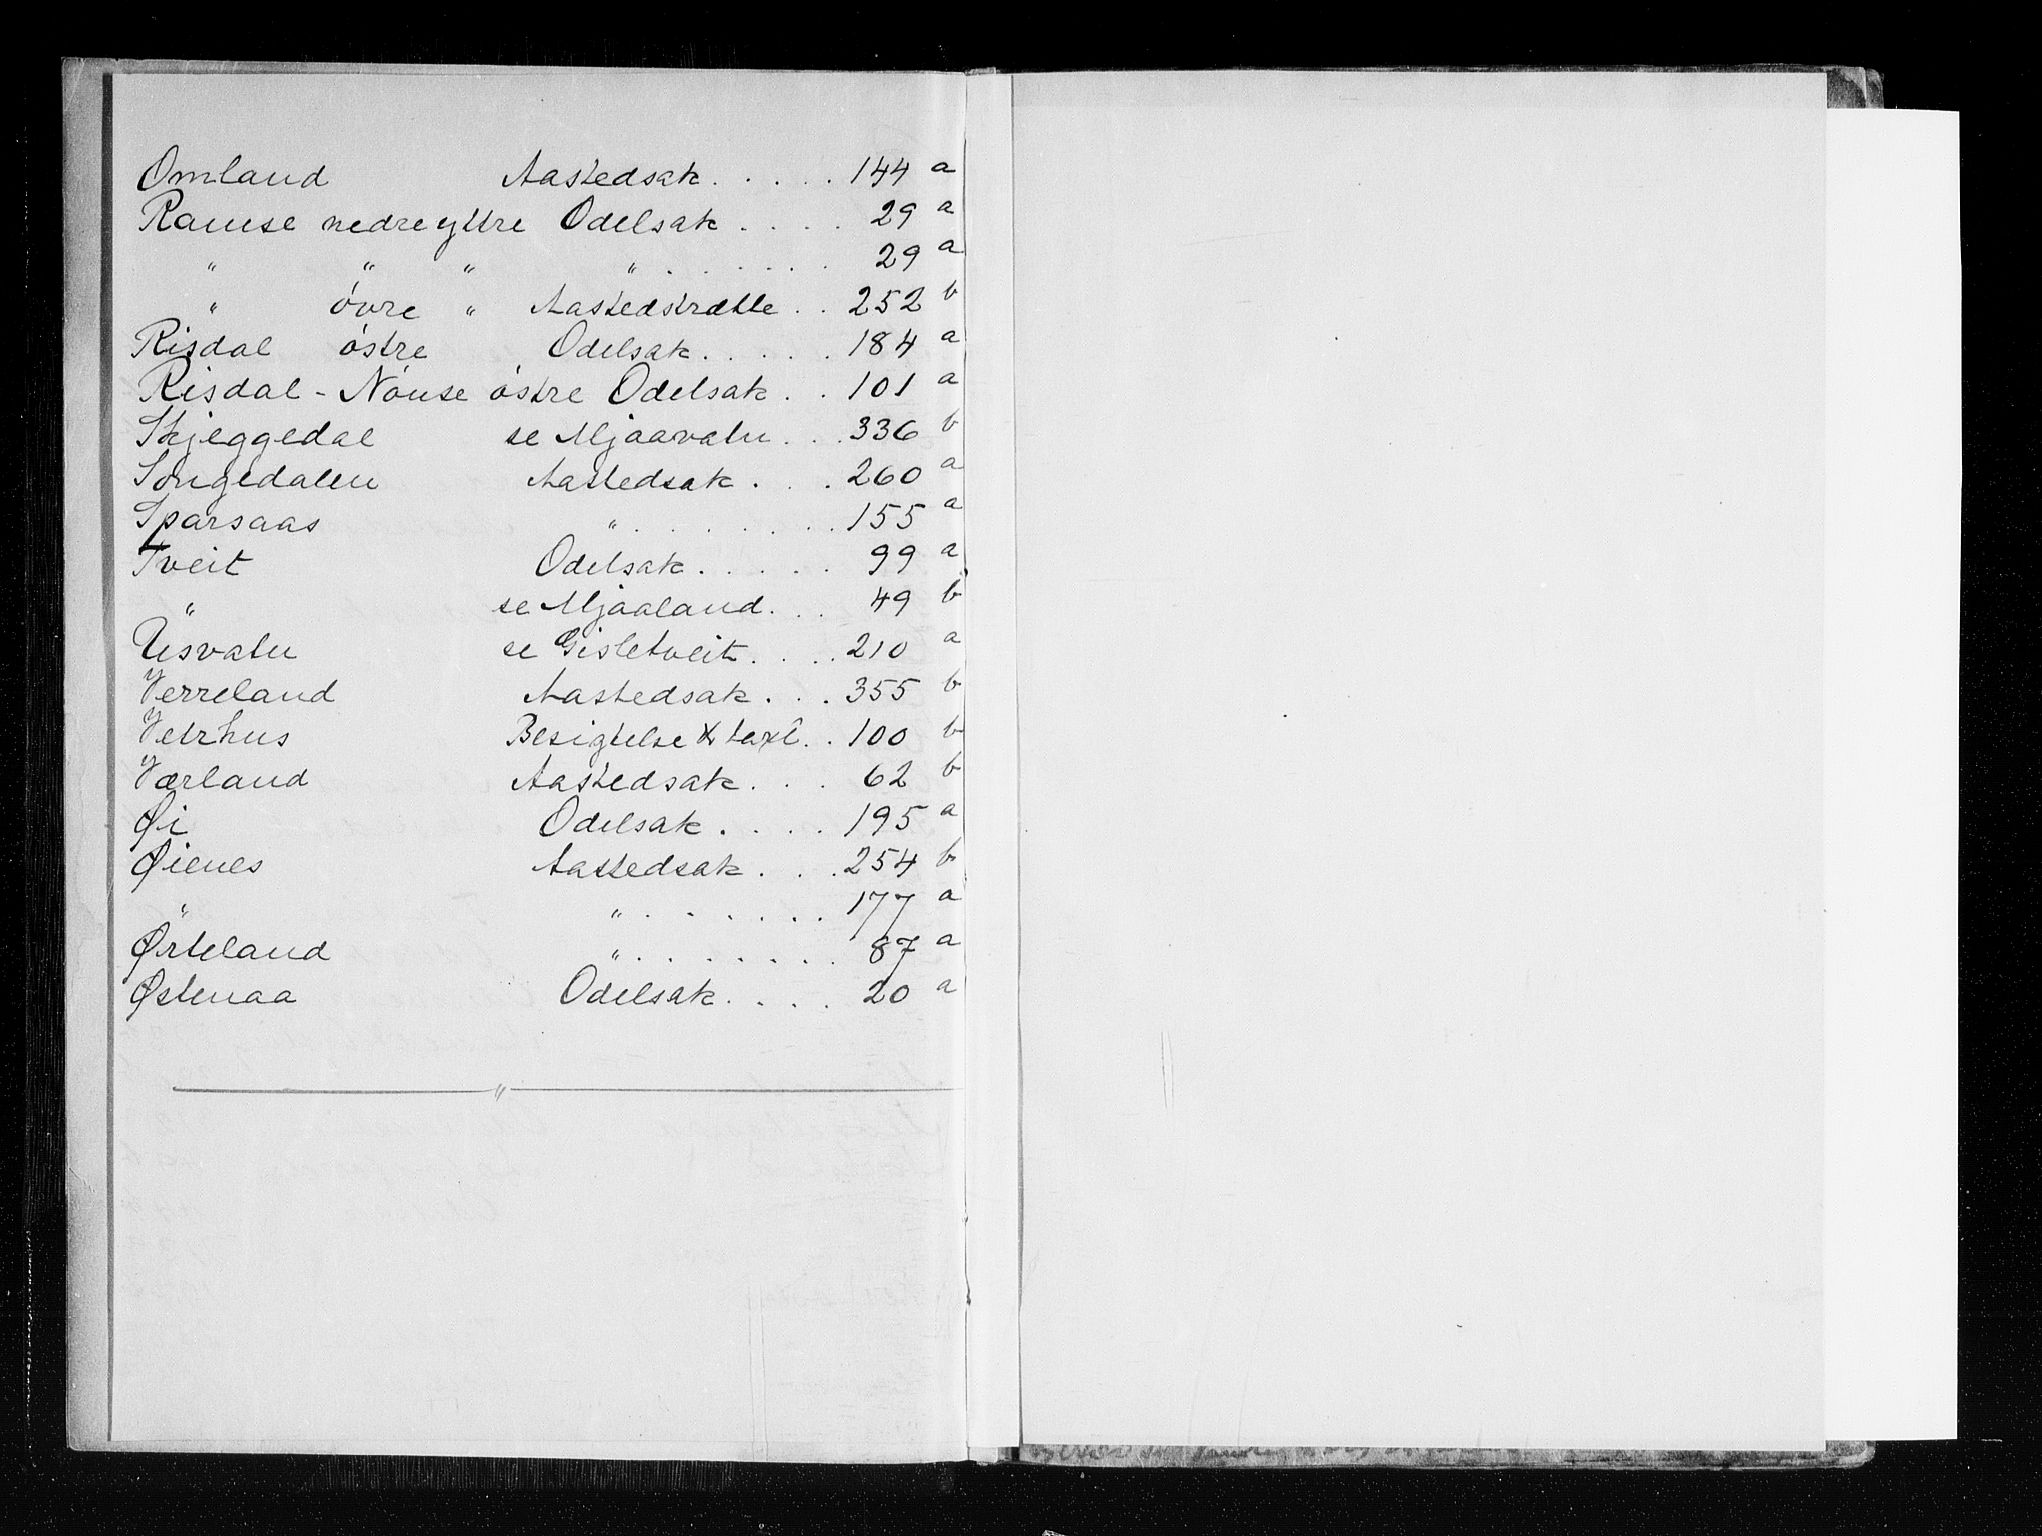 Omland Aastedsak. . . . . 144 a
Ramse nedre yttre Odelsak . . . . 29 a
" " " " . . . . . . 29 a
" övre " Aastedstrætte . . 252 b
Risdal östre Odelsak. . . . . 184 a
Risdal - Nönse östre Odelsak . . 101 a
Skjeggedal se Mjaavatn . . . 336 b
Songedalen Aastedsak . . . 260 a
Sparsaas " . . . . . . 155 a
Tveit Odelsak . . . . . 99 a
" se Mjaaland. . . 49 b
Uisvatn se Gisletveit. . . . 210 a
Verreland Aastedsak . . . 355 b
Vetrhus Besigtelse & taxt. . 100 b
Værland Aastedsak . . . 62 b
Øi Odelsak . . . . 195 a
Øienes Aastedsak . . . 254 b
" " . . . . . . 177 a
Ørteland " . . . . . . . 87 a
Østenaa Odelsak . . . . 20 a
"